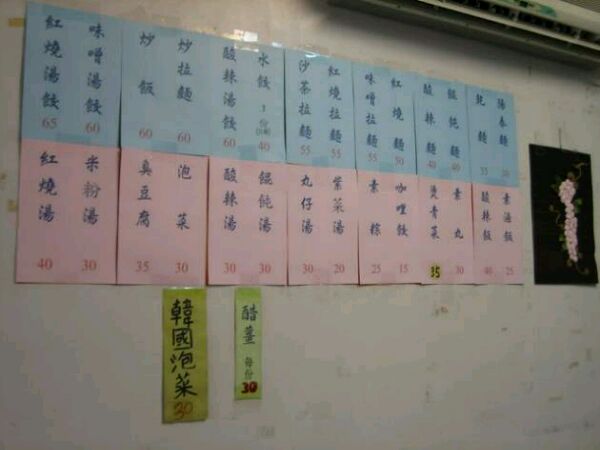 陽春麵
乾麵 35
餛飩麵 40
酸辣麵 40
紅燒麵 50
味噌拉麵 55
紅燒拉麵 55
沙茶拉麵 55
水餃 1份 40
酸辣湯餃 60
炒拉麵 60
炒飯 60
味噌湯餃 60
紅燒湯餃 65
素油飯 25
酸辣飯 40
素丸 30
燙青菜 35
咖哩餃 15
素粽 25
紫菜湯 20
丸仔湯 30
餛飩湯 30
酸辣湯 30
泡菜 30
臭豆腐 35
米粉湯 30
紅燒湯 40
醋薑 每份 30
韓國泡菜 30